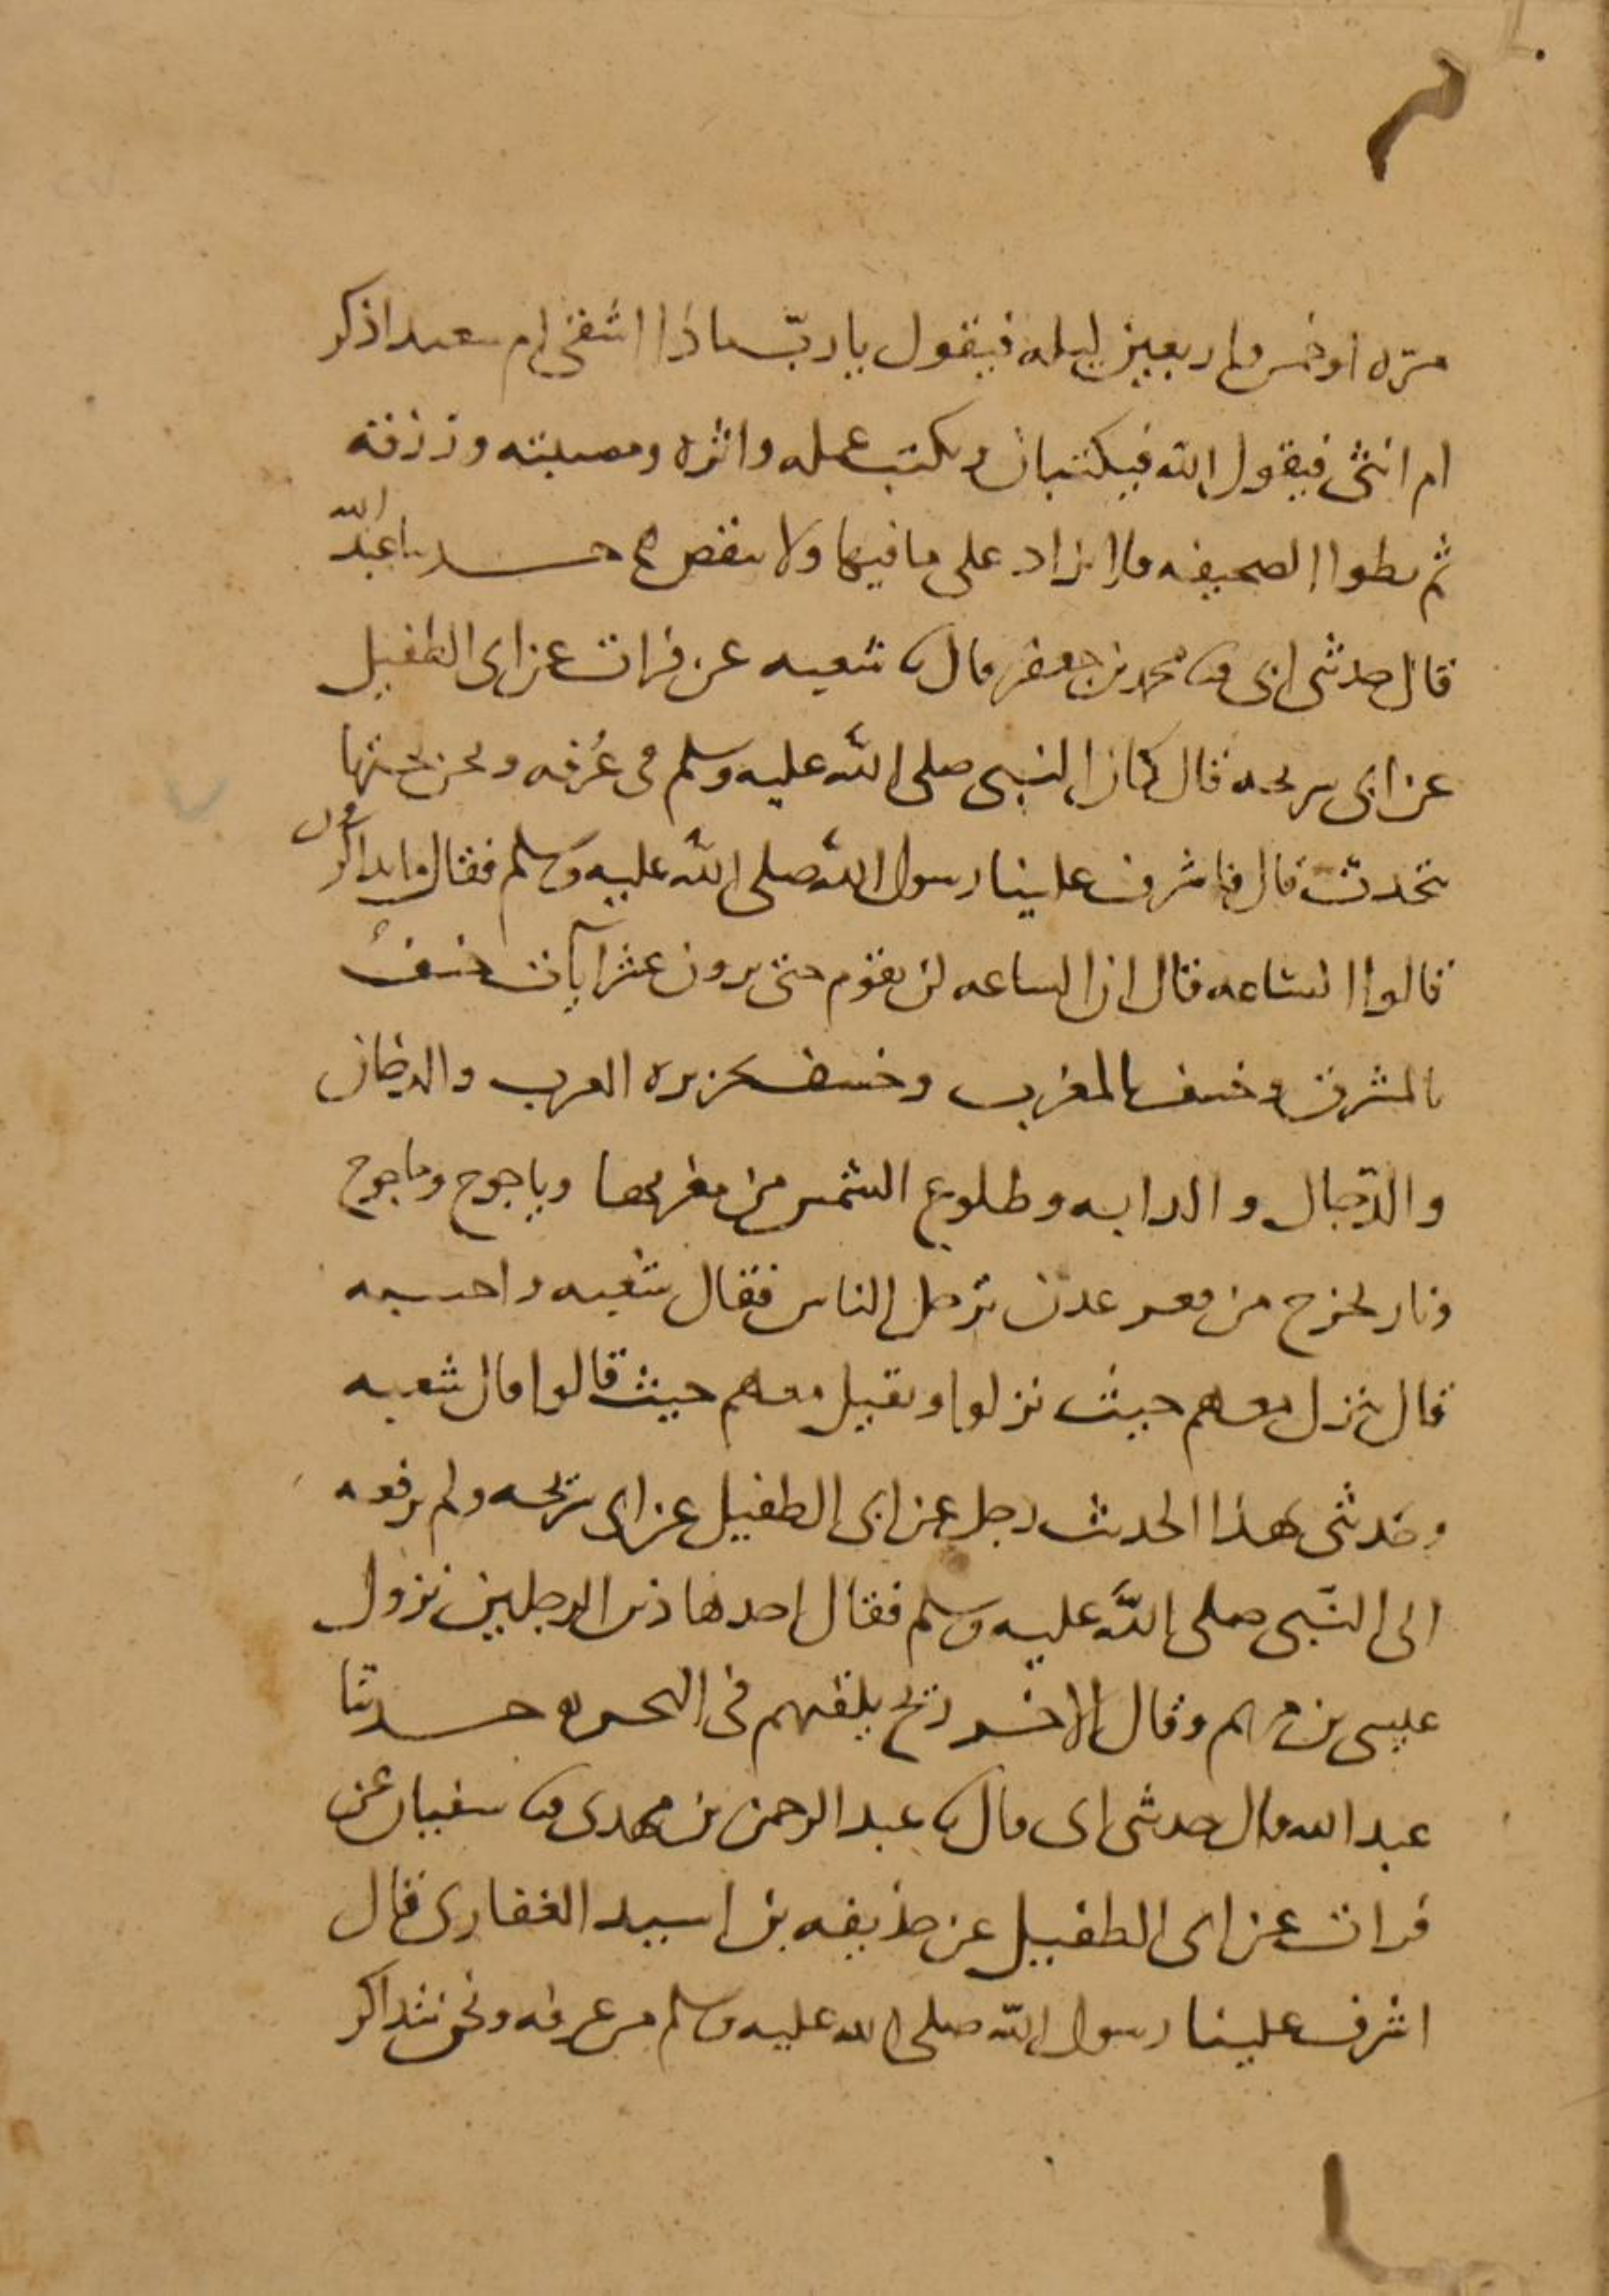 مرّه او خمس واربعين ليله فيقول يا ربّ ماذا اشقى ام سعيد اذكر
ام انثى فيقول الله فيكتبان ويكتب عمله واثره ومصيبته ورزقه
ثم يطوا الصحيفه فلا يزاد على ما فيها ولا ينقص حدثنا عبد الله
قال حدثنى ابى ثنا محمد بن جعفر قال ثنا شعبه عن فرات عن ابى الطفيل
عن ابى سريحه قال كان النبى صلى الله عليه وسلم فى غُرفه ونحن تحتها
نتحدث قال فاشرف علينا رسول الله صلى الله عليه وسلم فقال ما تذاكرون
قالوا الساعه قال ان الساعه لن تقوم حتى يرون عشر آيات خسفٌ
بالمشرق وخسف بالمغرب وخسف بجزيره العرب والدخان
والدّجال والدابه وطلوع الشمس من مغربها وياجوج وماجوج
ونار تخرج من قعر عدن ترحل الناس فقال شعبه واحسبه
قال تنزل معهم حيث نزلوا وتقيل معهم حيث قالوا قال شعبه
وحدثنى هذا الحديث رجل عن ابى الطفيل عن ابى سريحه ولم يرفعه
الى النّبى صلى الله عليه وسلم فقال احد هاذين الرجلين نزول
عيسى بن مريم وقال الاخر ريح يلقيهم فى البحر حدثنا
عبد الله قال حدثنى ابى قال ثنا عبد الرحمن بن مهدى ثنا سفيان عن
فرات عن ابى الطفيل عن حذيفه بن اسيد الغفارى قال
اشرف علينا رسول الله صلى الله عليه وسلم من غرفه ونحن نتذاكر